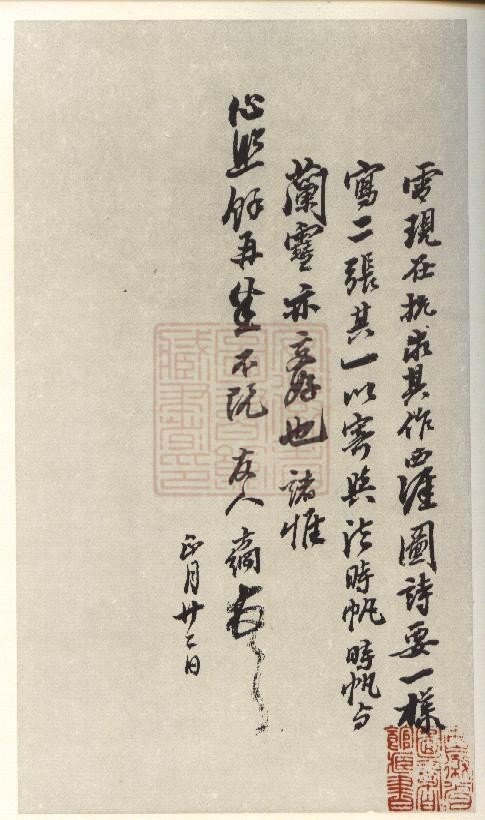 雪現在杭求其作西涯圖詩要一樣
寫二張其一以寄與法時帆時帆与
蘭雪亦交好也諸惟
心照餘再生不既 友人
正月廿二日